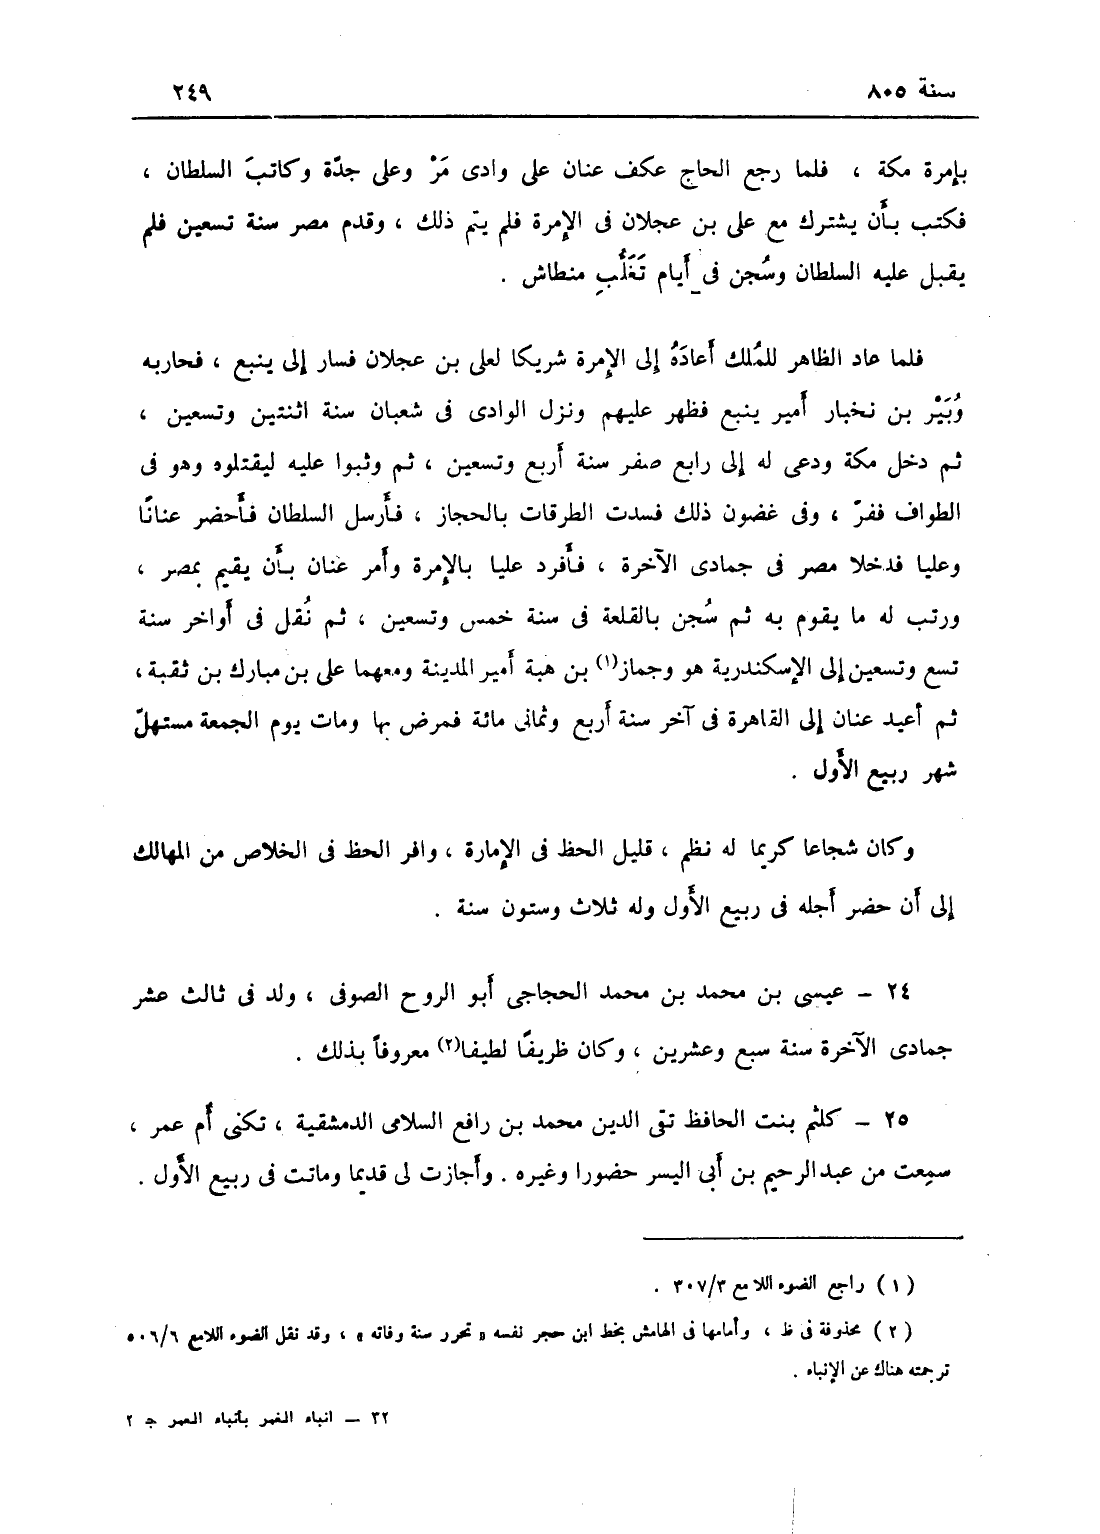 سنة ٨٠٥ ٢٤٩
بإمرة مكة ، فلما رجع الحاج عكف عنان على وادى مَرّْ وعلى جدّة وكاتبَ السلطان ،
فكتب بأَن يشترك مع على بن عجلان فى الإِمرة فلم يتم ذلك ، وقدم مصر سنة تسعين فلم
يقبل عليه السلطان وسُجن فى أَيام تَغَلُّبِ منطاش .
فلما عاد الظاهر للمُلك أَعادَهُ إِلى الإِمرة شريكا لعلى بن عجلان فسار إِلى ينبع ، فحاربه
وُبَيْر بن نخبار أَمير ينبع فظهر عليهم ونزل الوادى فى شعبان سنة اثنتين وتسعين ،
ثم دخل مكة ودعى له إِلى رابع صفر سنة أَربع وتسعين ، ثم وثبوا عليه ليقتلوه وهو فى
الطواف ففرّ ، وفى غضون ذلك فسدت الطرقات بالحجاز ، فأَرسل السلطان فأَحضر عنانًا
وعليا فدخلا مصر فى جمادى الآخرة ، فأَفرد عليا بالإِمرة وأَمر عنان بأَن يقيم بمصر ،
ورتب له ما يقوم به ثم سُجن بالقلعة فى سنة خمس وتسعين ، ثم نُقل فى أَواخر سنة
تسع وتسعين إِلى الإِسكندرية هو وجماز(١) بن هبة أَمير المدينة ومعهما على بن مبارك بن ثقبة ،
ثم أُعيد عنان إِلى القاهرة فى آخر سنة أَربع وثمانى مائة فمرض بها ومات يوم الجمعة مستهلّ
شهر ربيع الأَول .
وكان شجاعا كريما له نظم ، قليل الحظ فى الإِمارة ، وافر الحظ فى الخلاص من المهالك
إِلى أَن حضر أَجله فى ربيع الأَول وله ثلاث وستون سنة .
٢٤ – عيسى بن محمد بن محمد الحجاجى أَبو الروح الصوفى ، ولد فى ثالث عشر
جمادى الآخرة سنة سبع وعشرين ، وكان ظريفًا لطيفا(٢) معروفاً بذلك .
٢٥ – كلثم بنت الحافظ تقى الدين محمد بن رافع السلامى الدمشقية ، تكنى أُم عمر ،
سمِعت من عبد الرحيم بن أَبى اليسر حضورا وغيره . وأَجازت لى قديما وماتت فى ربيع الأَول .
(١) راجع الضوء اللامع ٣٠٧/٣ .
(٢) محذوفة فى ظ ، وأمامها فى الهامش بخط ابن حجر نفسه « تحرر سنة وفاته » ، وقد نقل الضوء اللامع ٥٠٦/٦
ترجمته هناك عن الإنباء .
٣٢ – انباء الغمر بأنباء العمر جـ ٢